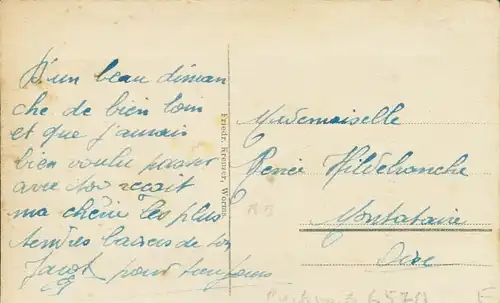 D'un beau diman
che de bien loin
et que j'aurais
bien voulu passer
avec toi reçait
ma chérie les plus
tendres baisers de ton
pour toujours
Friedr. Krenzer, Worms
Mademoiselle
Renée Hildefranche
Montataire
Oise